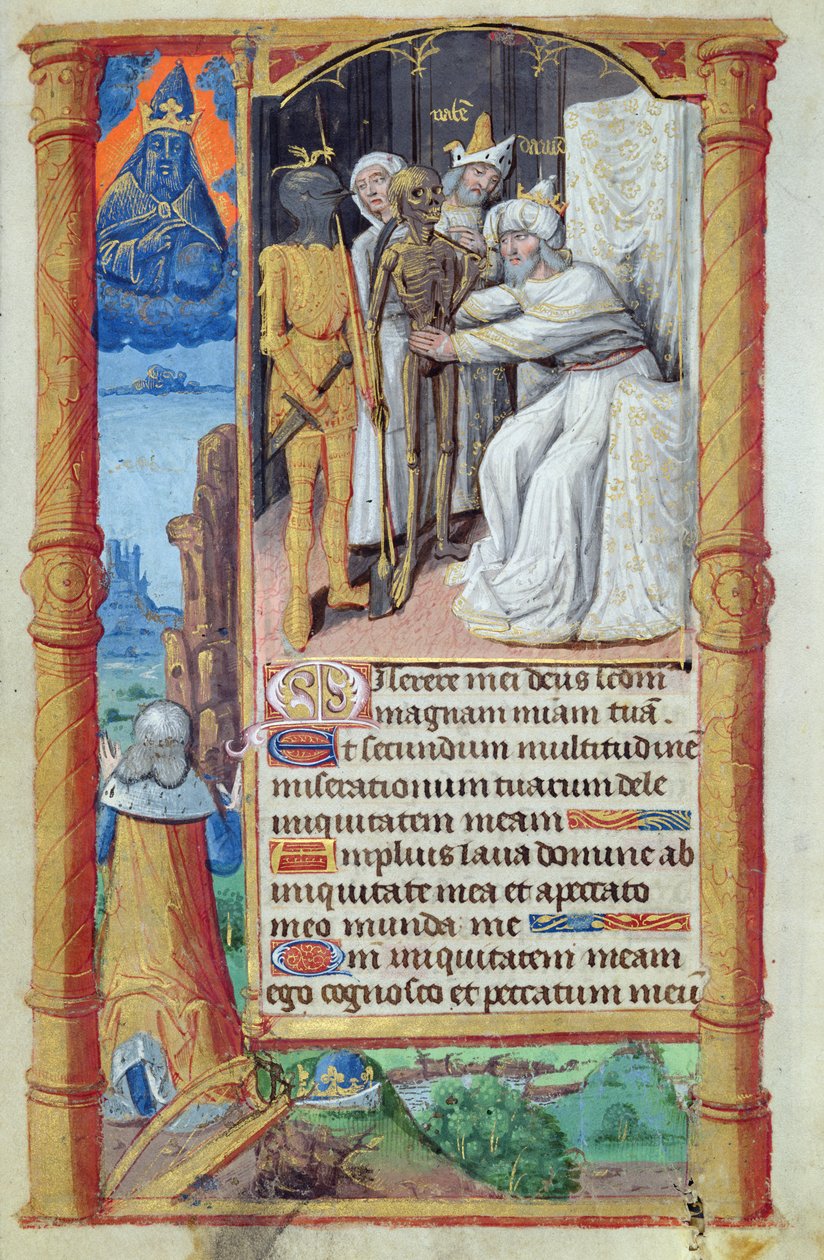 natẽ
dauid
Miserere mei deus scd̃m
magnam miam̃ tuã.
Et secundum multitudinẽ
miserationum tuarum dele
iniquitatem meam
Amplius laua domine ab
iniquitate mea et apeccato
meo munda me
Qm̃ iniquitatem meam
ego cognosco et peccatum meũ